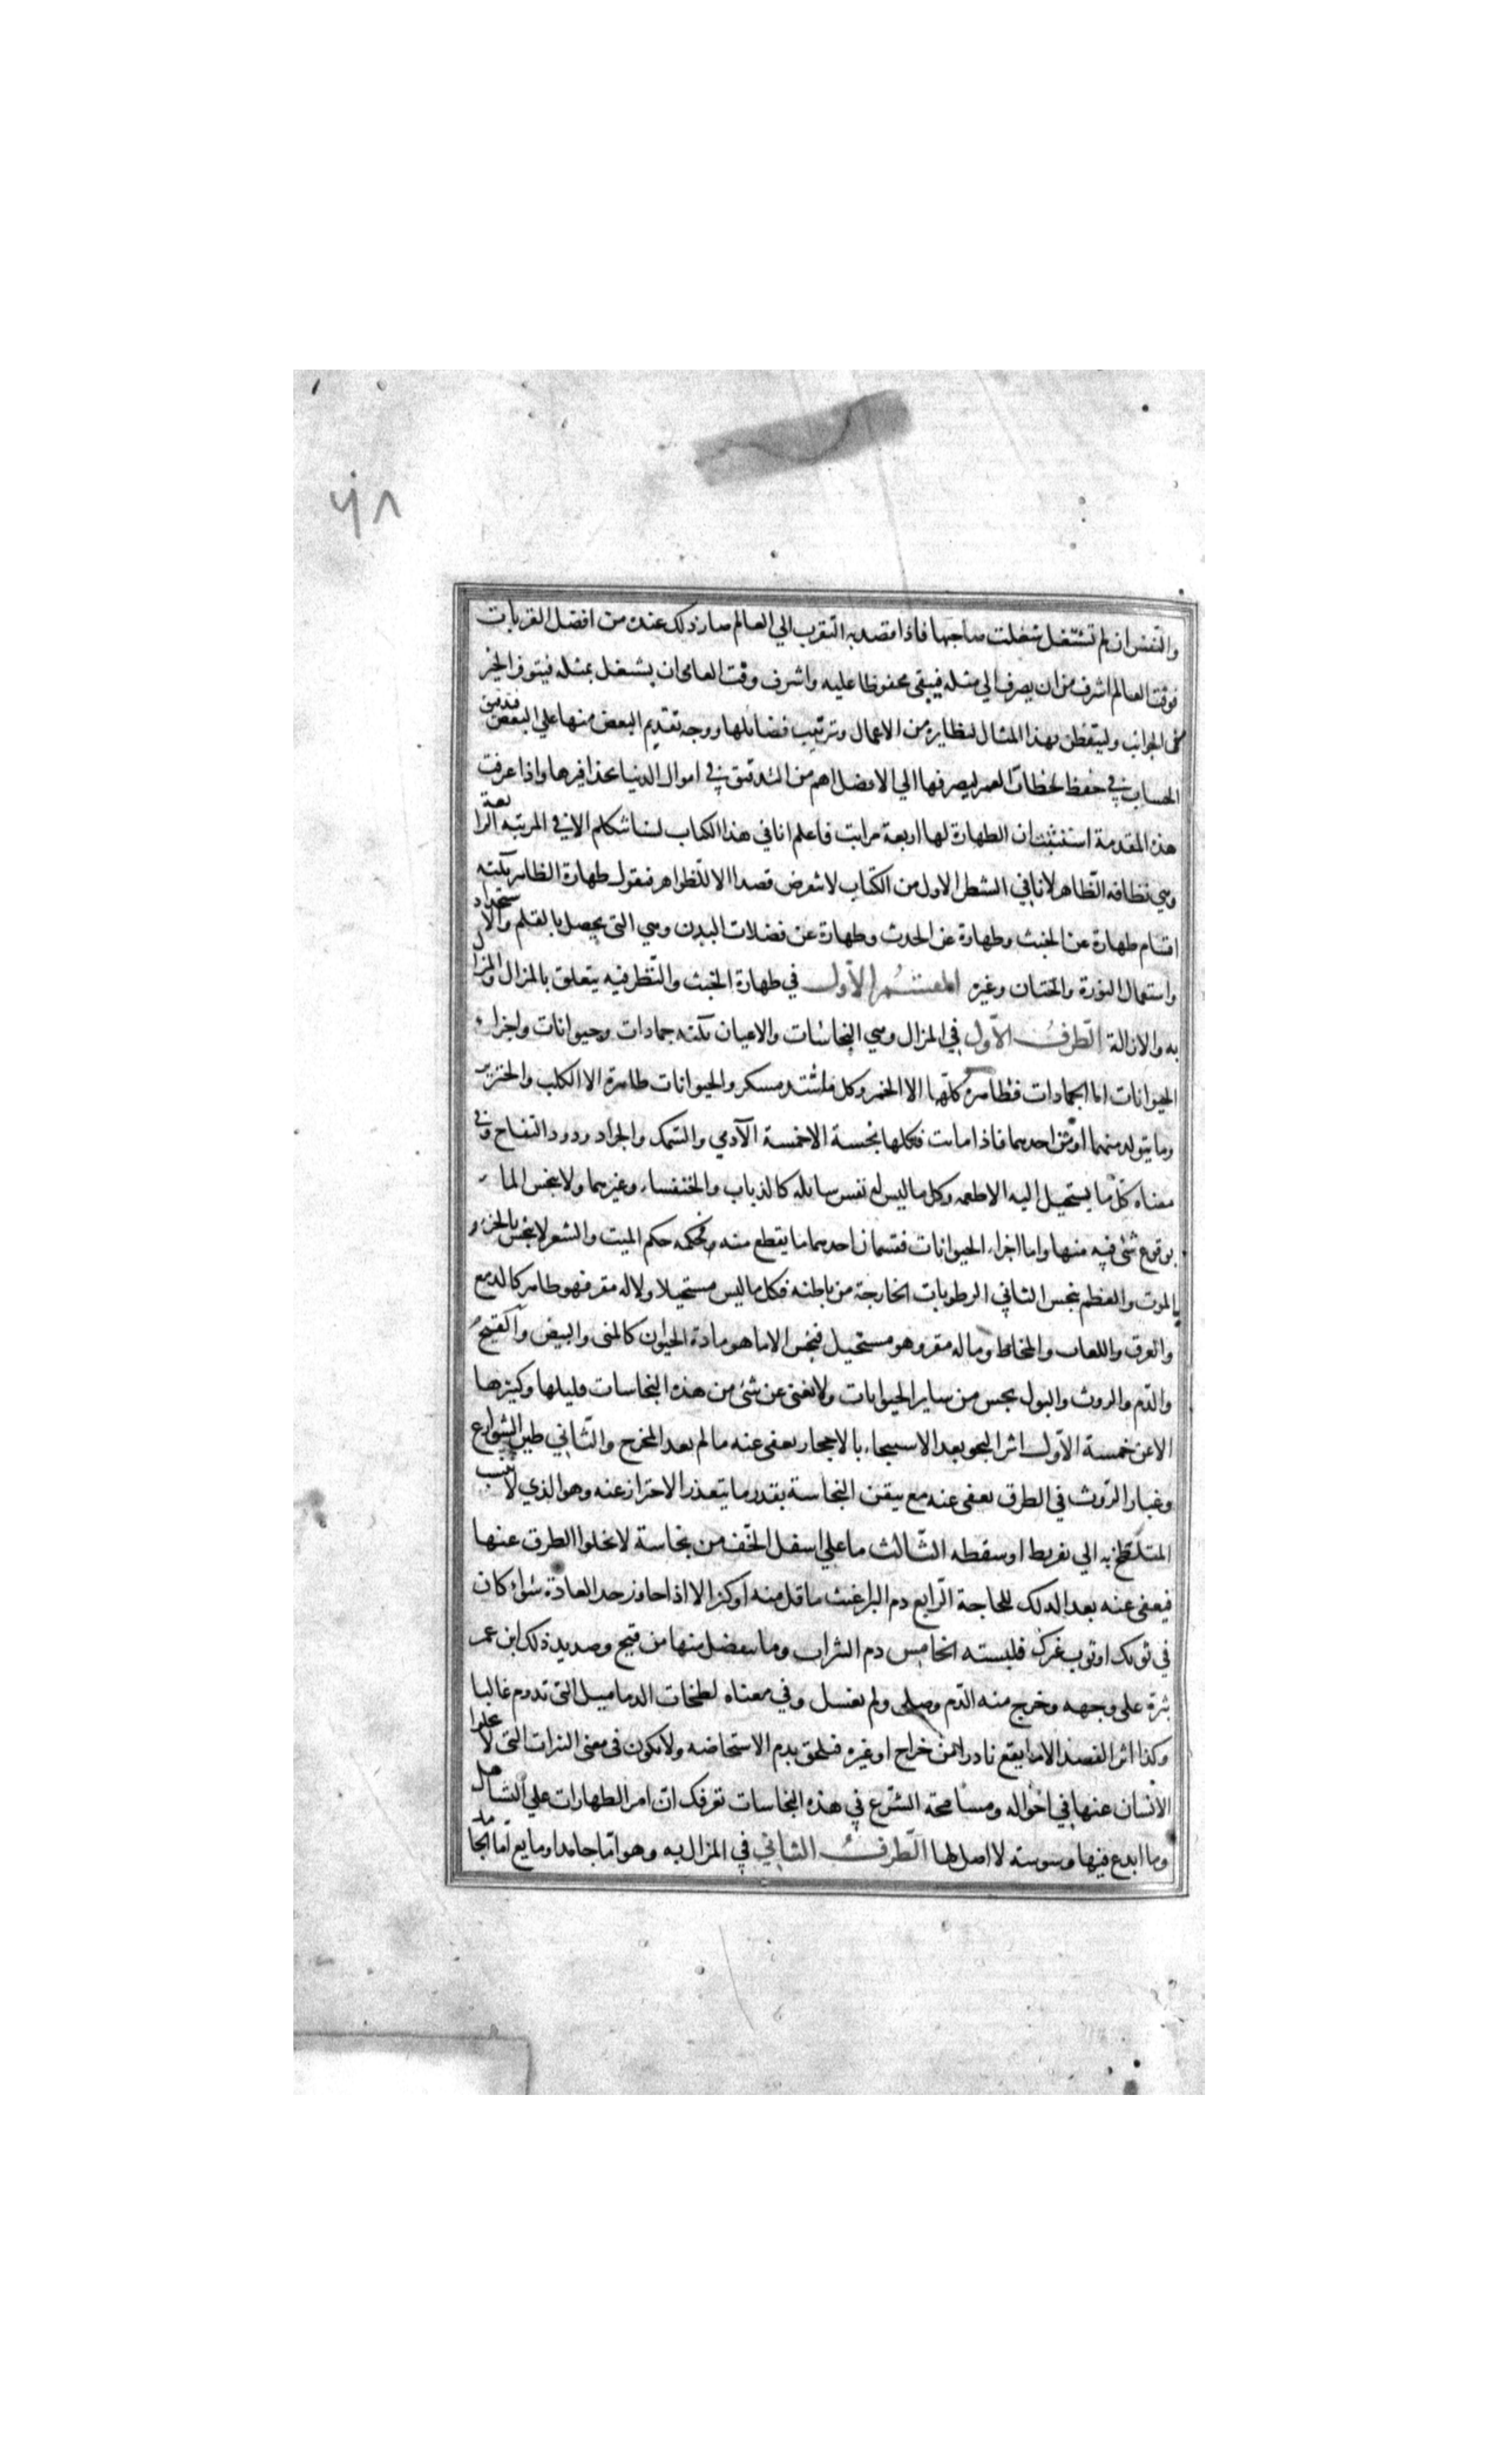 ٦٨
والنفس ان لم تشتغل شغلت صاحبها فاذا قصد به التقرب الي العالم صار ذلك عنده من افضل القربات
فوقت العالم اشرف من ان يصرف الي مثله فيبقي محفوظا عليه واشرف وقت العامي ان يشتغل بمثله فيتوفر الخير
من الجوانب وليتفطن بهذا المثال لنظايره من الاعمال وترتيب فضائلها ووجه تقديم البعض منها علي البعض فتدقيق
الحساب في حفظ لحظات العمر ليصرفها الي الافضل اهم من التدقيق في اموال الدنيا بحذافيرها واذا عرفت
هذه المقدمة استثبت ان الطهارة لها اربعة مراتب فاعلم انا في هذا الكتاب لسنا نتكلم الا في المرتبه الرابعة
وهي نظافه الظاهر لانا في الشطر الاول من الكتاب لا نتعرض قصدا الا للظواهر فنقول طهارة الظاهر ثلثه
اقسام طهارة عن الخبث وطهارة عن الحدث وطهارة عن فضلات البدن وهي التي يحصل بالقلم والاستحداد
واستعمال النورة والختان وغيره القسم الاول في طهارة الخبث والنظر فيه يتعلق بالمزال والمزال
به والازالة الطرف الاول في المزال وهي النجاسات والاعيان ثلثه جمادات وحيوانات واجزاء
الحيوانات اما الجمادات فطاهرة كلها الا الخمر وكل مشتد مسكر والحيوانات طاهرة الا الكلب والخنزير
وما يتولد منهما او من احدهما فاذا ماتت فكلها نجسة الا خمسة الآدمي والسمك والجراد ودود التفاح وفي
معناه كل ما يستحيل اليه الاطعمه وكل ما ليس له نفس سايله كالذباب والخنفساء وغيرهما ولا ينجس الماء
بوقوع شئ فيه منها واما اجزاء الحيوانات فقسمان احدهما ما يقطع منه وحكمه حكم الميت والشعر لا ينجس بالجز و
بالموت والعظم ينجس الثاني الرطوبات الخارجة من باطنه فكل ما ليس مستحيلا ولا له مقر فهو طاهر كالدمع
والعرق واللعاب والمخاط وما له مقر وهو مستحيل فنجس الا ما هو مادة الحيوان كالمني والبيض والقيح
والدم والروث والبول نجس من ساير الحيوانات ولا يعفى عن شئ من هذه النجاسات قليلها وكثيرها
الا عن خمسة الاول اثر النجو بعد الاستنجاء بالاحجار يعفى عنه ما لم يعد المخرج والثاني طين الشوارع
وغبار الروث في الطرق يعفى عنه مع تيقن النجاسة بقدر ما يتعذر الاحتراز عنه وهو الذي لا ينسب
المتلطخ به الي تفريط او سقطه الثالث ما علي اسفل الخف من نجاسة لا تخلوا الطرق عنها
فيعفى عنه بعد الدلك للحاجة الرابع دم البراغيث ما قل منه او كثر الا اذا جاوز حد العادة سواء كان
في ثوبك او ثوب غيرك فلبسته الخامس دم البثرات وما ينفصل منها من قيح وصديد ذلك ابن عمر
بثرة على وجهه وخرج منه الدم وصلى ولم يغسل وفي معناه لطخات الدماميل التي تدوم غالبا
وكذا اثر الفصد الا ما يقع نادرا من خراج او غيره فيلحق بدم الاستحاضه ولا يكون في معنى البثرات التي لا يخلوا
الانسان عنها في احواله ومسامحة الشرع في هذه النجاسات تعرفك ان امر الطهارات علي التساهل
وما ابدع فيها وسوسته لا اصل لها الطرف الثاني في المزال به وهو اما جامد او مايع اما الجامد